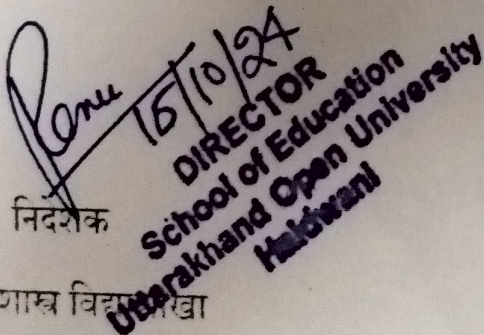 Renu
15/10/24
DIRECTOR
School of Education
Uttarakhand Open University
Haldwani
निदेशक